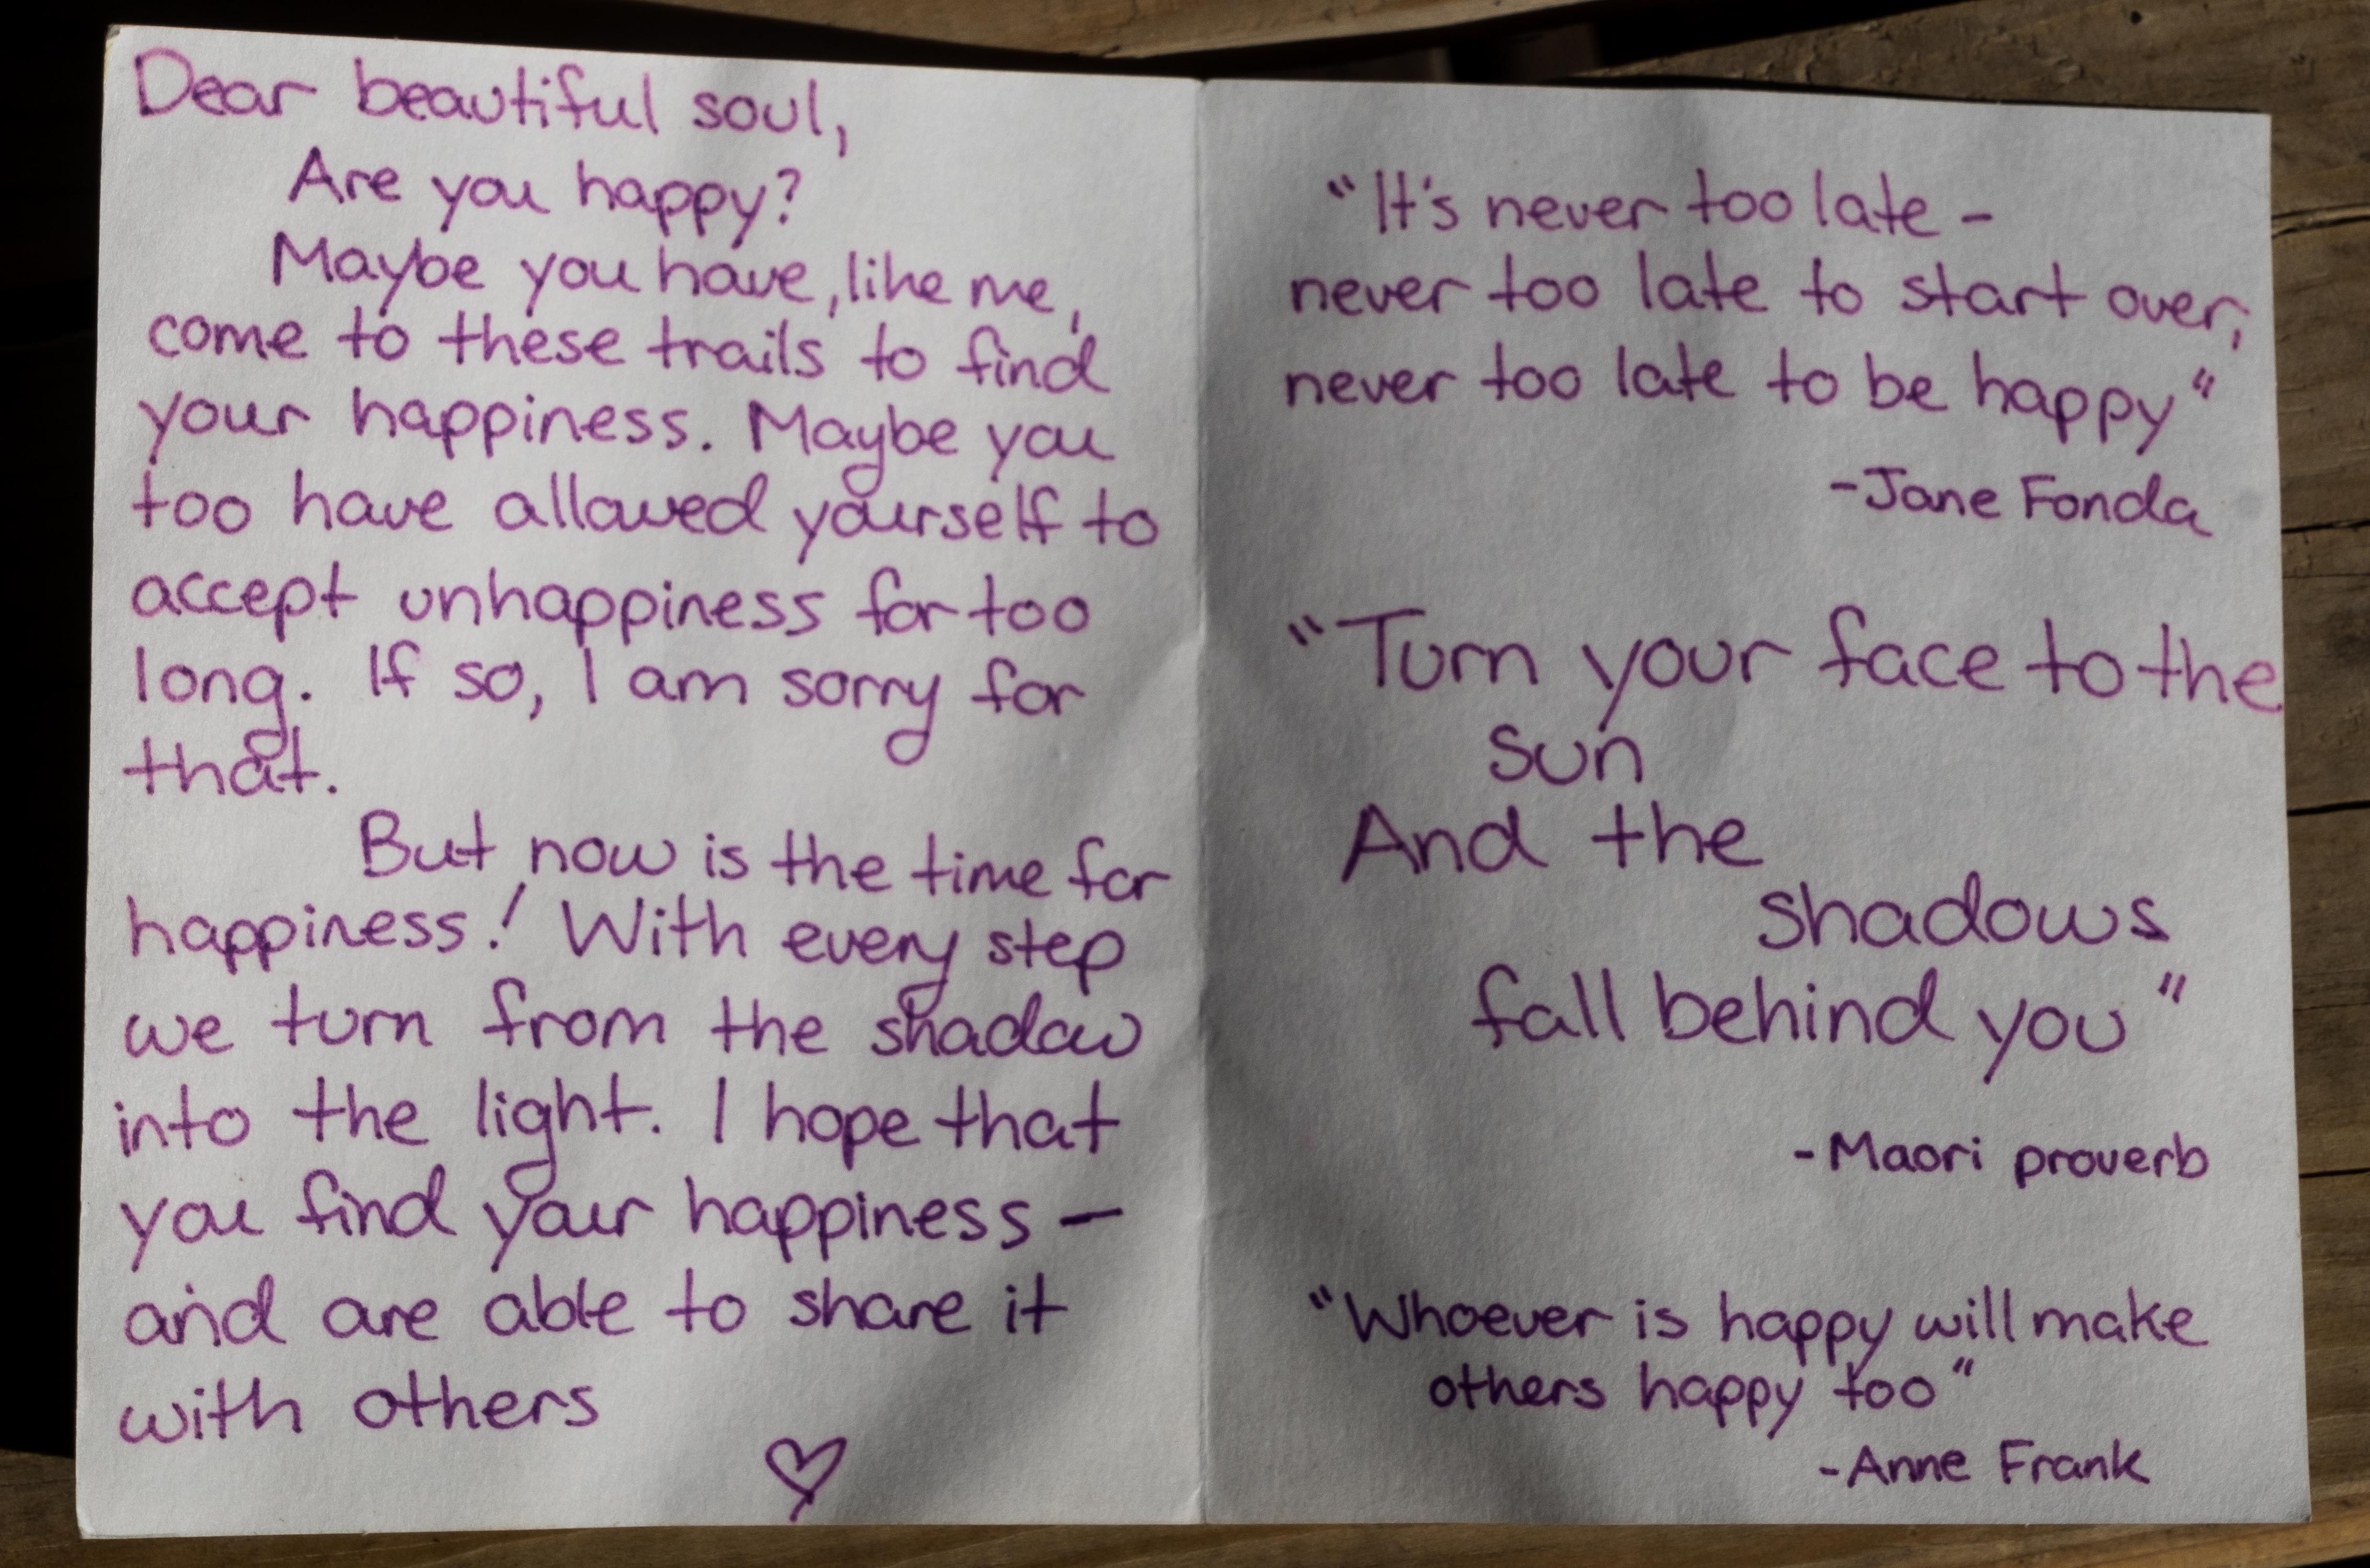 Dear beautiful soul,
Are you happy?
Maybe you have, like me,
come to these trails to find
your happiness. Maybe you
too have allowed yourself to
accept unhappiness for too
long. If so, I am sorry for
that.
But now is the time for
happiness! With every step
we turn from the shadow
into the light. I hope that
you find your happiness —
and are able to share it
with others
"It's never too late -
never too late to start over,
never too late to be happy"
-Jane Fonda
"Turn your face to the
sun
And the
shadows
fall behind you"
-Maori proverb
"Whoever is happy will make
others happy too"
-Anne Frank